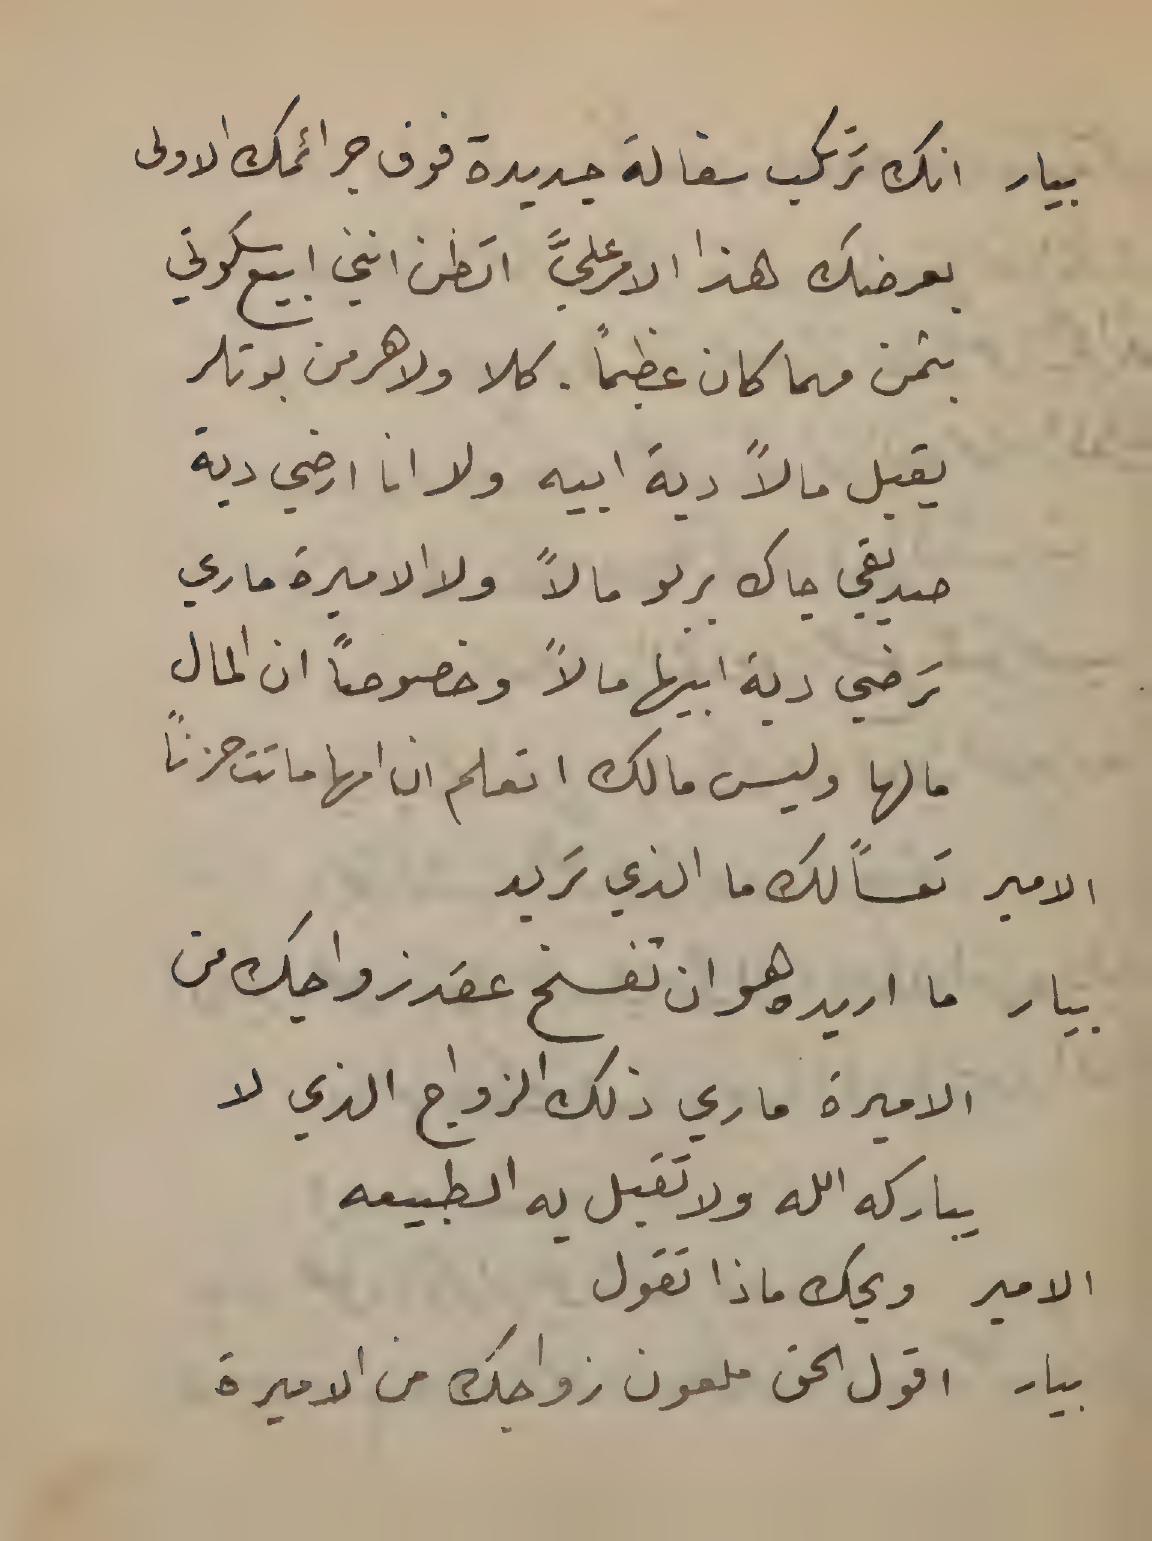 بيار انك تَركب سفالة جديدة فوق جرائمك الاولى
بعرضك هذا الامر عليَّ اتظن انني ابيع سكوتي
بثمن مهما كان عظيماً . كلا ولا هرمن بوتلر
يقبل مالاً دية ابيه ولا انا ارضي دية
صديقي جاك بربو مالاً ولا الاميرة ماري
تَرضي دية ابيها مالاً وخصوصاً ان المال
مالها وليس مالك اتعلم ان امها ماتت حزناً
الامير تعساً لك ما الذي تَريد
بيار ما اريده هو ان تفسخ عقد زواجك من
الاميرة ماري ذلك الزواج الذي لا
يباركه الله ولا تقبل به الطبيعه
الامير ويحك ماذا تقول
بيار اقول الحق ملعون زواجك من الاميرة